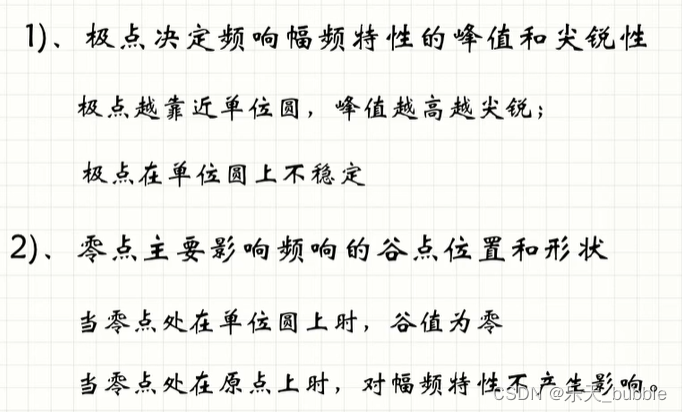 1)、极点决定频响幅频特性的峰值和尖锐性
极点越靠近单位圆，峰值越高越尖锐；
极点在单位圆上不稳定
2)、零点主要影响频响的谷点位置和形状
当零点处在单位圆上时，谷值为零
当零点处在原点上时，对幅频特性不产生影响。
CSDN @乐天_bubble